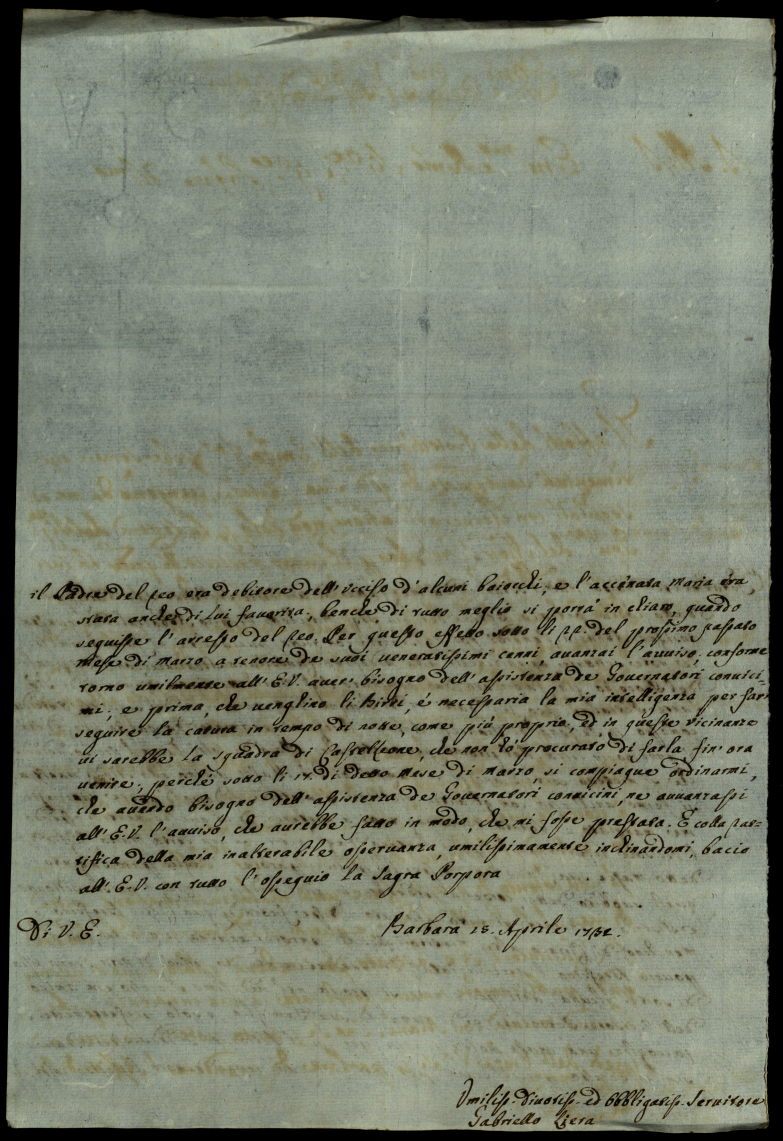 il Padre del Reo era debitore dell'ucciso d'alcuni baiocchi, e l'accenata Maria era
stata anche di lui favorita, benche di tutto meglio si porrà in chiaro, quando
seguisse l'arresto del Reo. Per questo effetto sotto li 22. del prossimo passato
Mese di Marzo a tenore de suoi veneratissimi cenni, avanzai l'avviso, conforme
torno umilmente all'E.V. aver bisogno dell'assistenza de Governatori convici-
ni; e prima, che venghino li Birri, é necessaria la mia intelligenza per far
seguire la catura in tempo di notte, come più proprio, ed in queste vicinanze
vi sarebbe la squadra di Castelleone, che non hò procurato di farla fin'ora
venire, perche sotto li 15. di detto Mese di Marzo, si compiaque ordinarmi,
che avendo bisogno dell'assistenza de Governatori convicini, ne avvanzassi
all'E.V. l'avviso, che avrebbe fatto in modo, che mi fosse prestata. E colla rat-
tifica della mia inalterabile osservanza, umilissimamente inchinandomi, bacio
all'E.V. con tutto l'ossequio la Sagra Porpora
Di V. E. Barbara 18. Aprile
Umiliss. Divotiss. ed Obbligatiss. Servitore
Gabriello